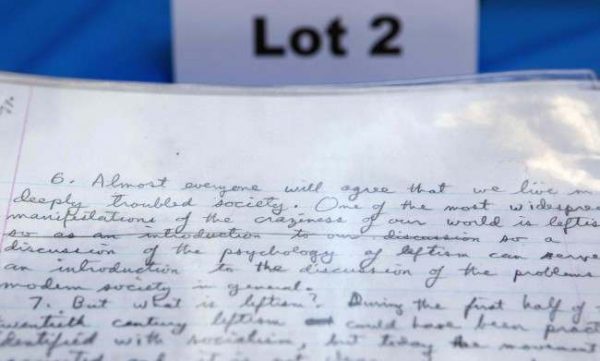 Lot 2
6. Almost everyone will agree that we live in
deeply troubled society. One of the most widespre
manipulations of the craziness of our world is leftis
so is an introduction to our discussion so a
discussion of the psychology of leftism can serve
an introduction to the discussion of the problems
modern society in general.
7. But what is leftism? During the first half of
twentieth century leftism could have been pract
identified with socialism, but today the movement